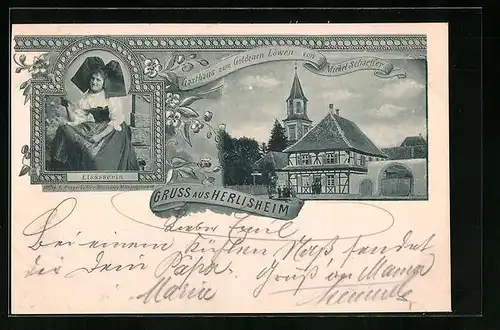 Gasthaus zum Goldenen Löwen von
Michel Schaeffer
Elsässerin
GRUSS AUS HERLISHEIM
Lieber Emil
Bei einem kühlen Naß sendet
dir dein Papa. Gruß an Mama
Marie